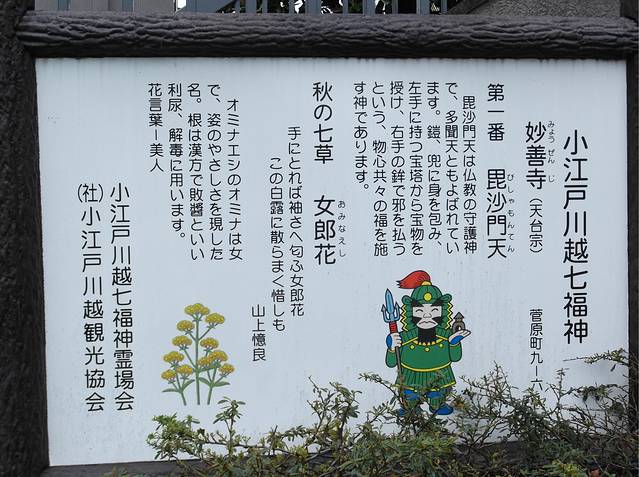 小江戸川越七福神
妙善寺（天台宗）
みょうぜんじ
菅原町九ー六
第一番 毘沙門天
びしゃもんてん
毘沙門天は仏教の守護神
で、多聞天ともよばれてい
ます。鎧、兜に身を包み、
左手に持つ宝塔から宝物を
授け、右手の鉾で邪を払う
という、物心共々の福を施
す神であります。
秋の七草 女郎花
おみなえし
手にとれば袖さへ匂ふ女郎花
この白露に散らまく惜しも
山上憶良
オミナエシのオミナは女
で、姿のやさしさを現した
名。根は漢方で敗醤といい
利尿、解毒に用います。
花言葉ー美人
小江戸川越七福神霊場会
（社）小江戸川越観光協会